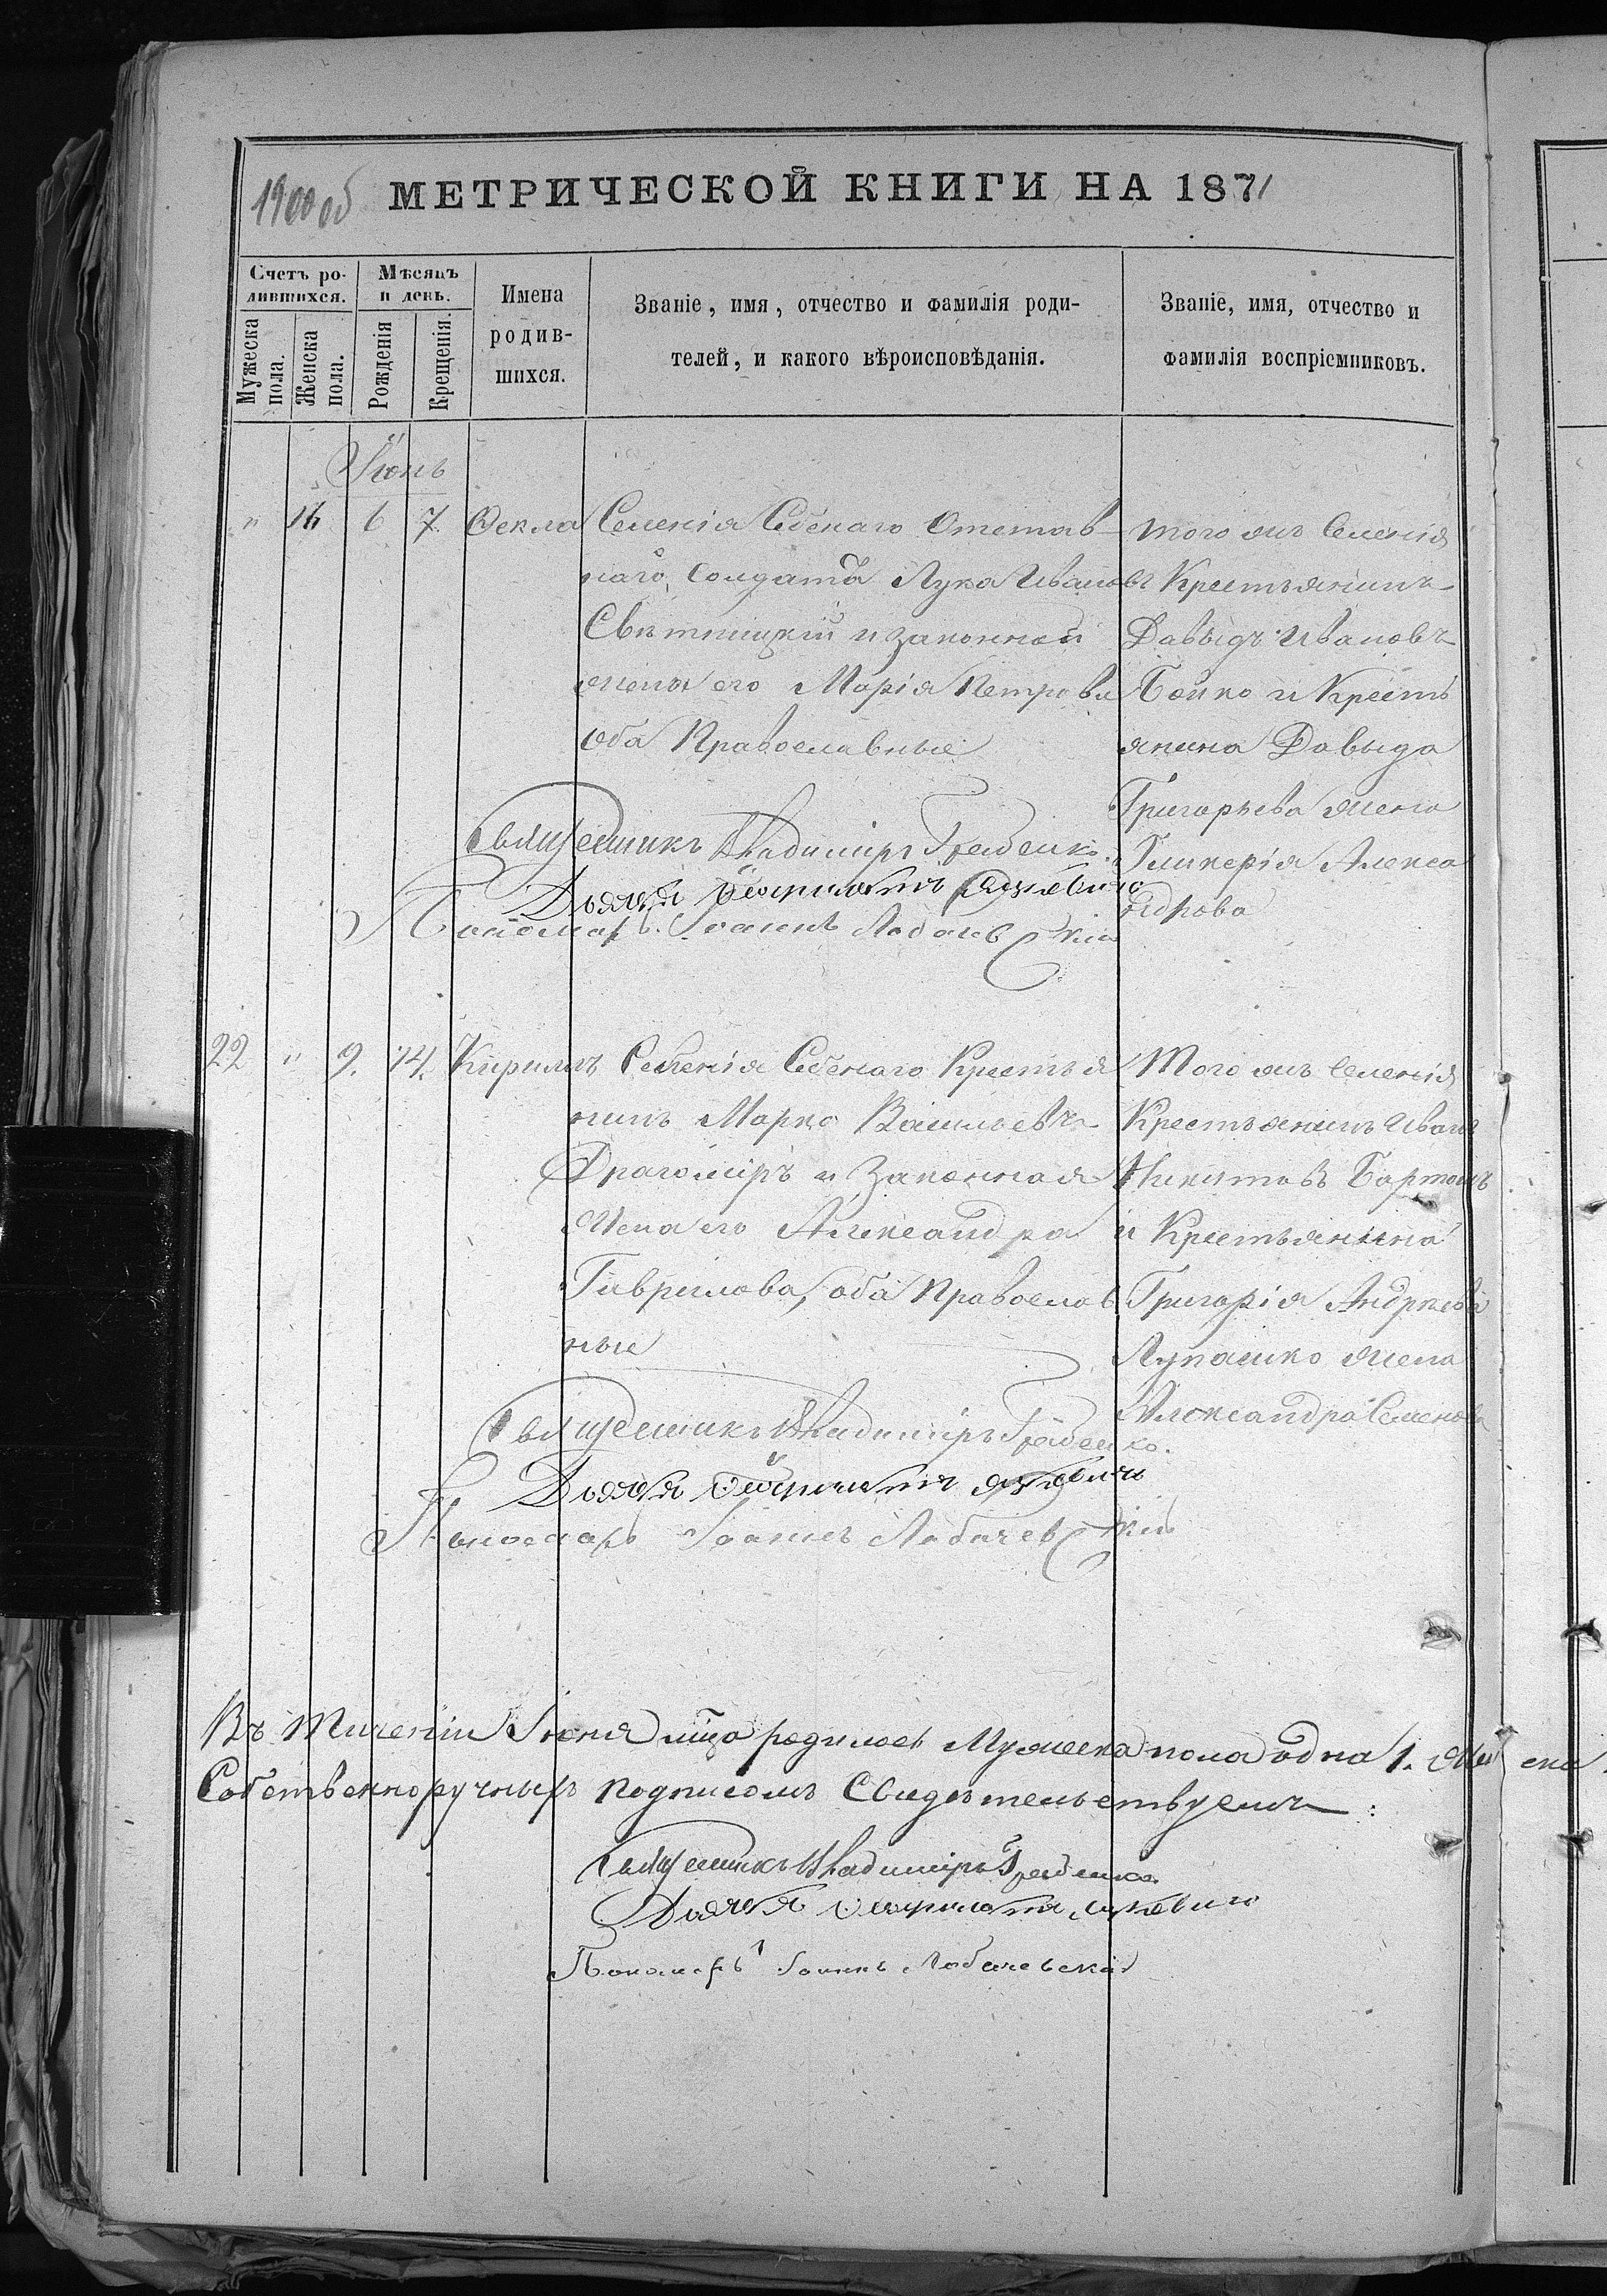 1900 об МЕТРИЧЕСКОЙ КНИГИ НА 1871
Счетъ ро-
дившихся.
Мужеска
пола.
Женска
пола.
Мѣсяцъ
и день.
Рожденія
Крещенія.
Имена
родив-
шихся.
Званіе, имя, отчество и фамилія роди-
телей, и какого вѣроисповѣданія.
Званіе, имя, отчество и
фамилія воспріемниковъ.
Іюнь
" 16 6 7. Фекла
Селенія Собскаго Отстав-
наго Солдата Лука Ивановъ
и законной
жена его Марія Петрова
оба Православные
того жъ Селенія
Крестьянинъ
Давыдъ Ивановъ
Бойко и Кресть
янина Давыда
Григорьева жена
Гликерія Алекса
ндрова
Священникъ Владиміръ
Дьячекъ
Пономарь Іоаннъ Лобачевскій
22 " 9. 14. Кириллъ
Селенія Собскаго Крестья
нинъ Марко Васильевъ
Драгоміръ и Законная
Жена его Александра
Гаврилова, оба Православ
ные
Того жъ Селенія
Крестьянинъ Иванъ
Никитовъ
и Крестьянина
Григорія Андреева
Лупашко жена
Александра Семенова
Священникъ Владиміръ
Дьячекъ
Пономарь Іоаннъ Лобачевскій
Въ тичении Іюня м͠ца родилось Мужеска пола одна 1. Же ска
Собственноручнымъ подписомъ Свидѣтельствуемъ:
Священникъ Владиміръ
Дьячекъ
Пономарь Іоаннъ Лобачевскій